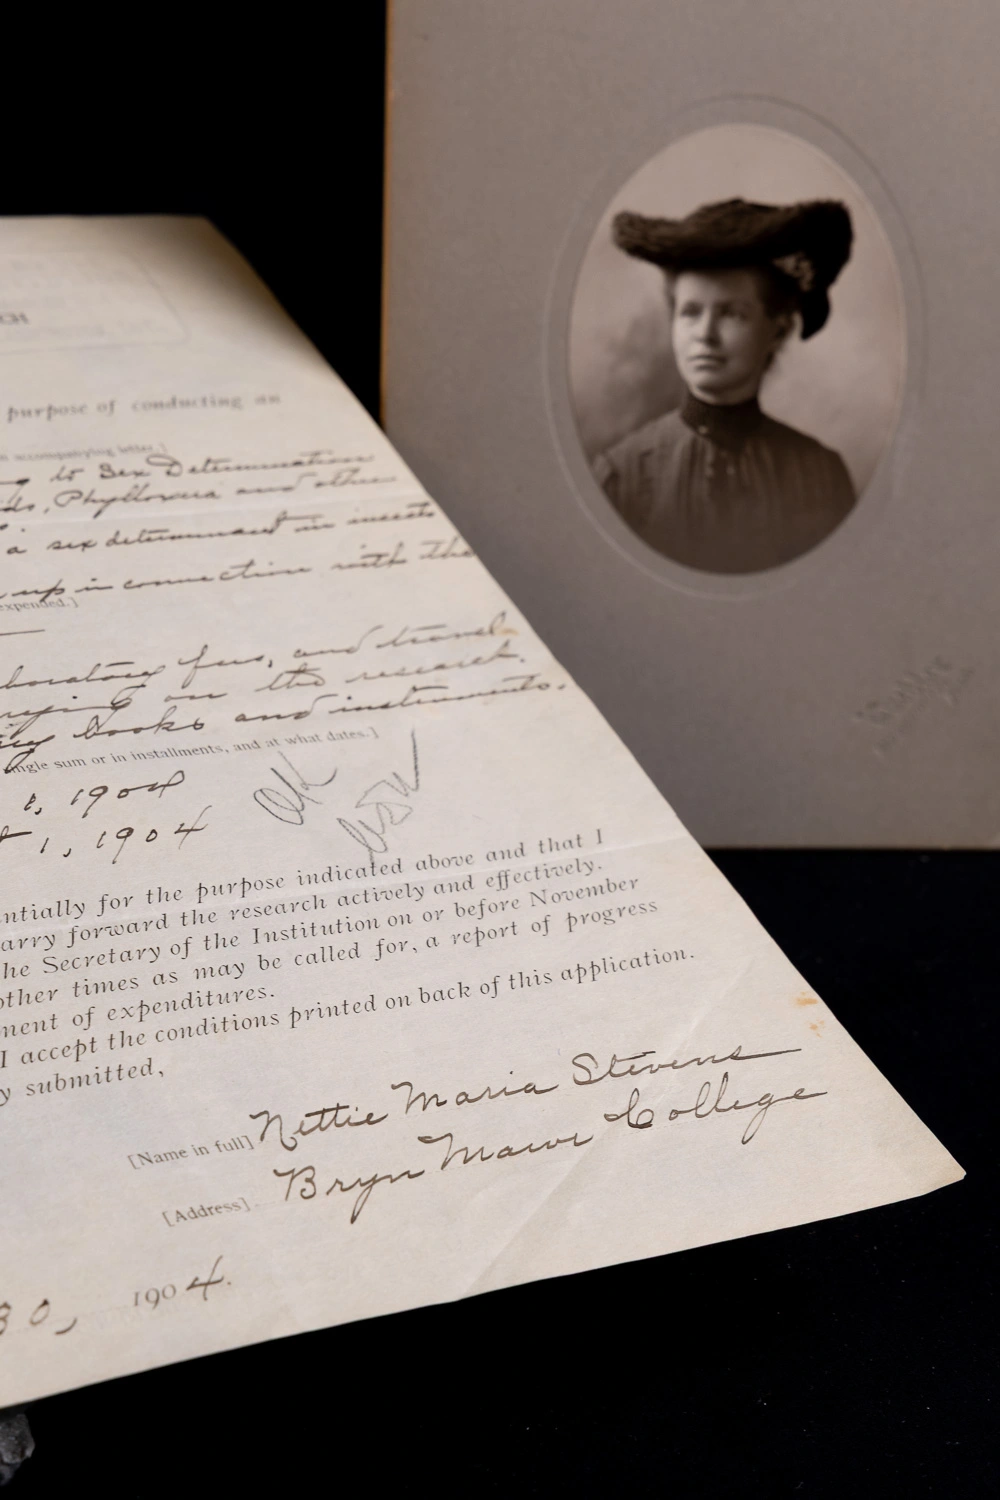 CH
purpose of conducting an
accompanying letter.]
to Sex Determination
Phylloxera and other
a sex determinant in insects
up in connection with the
expended.]
laboratory fees, and travel
on the research.
books and instruments.
ingle sum or in installments, and at what dates.]
1, 1904
1, 1904
OK
ntially for the purpose indicated above and that I
arry forward the research actively and effectively.
he Secretary of the Institution on or before November
other times as may be called for, a report of progress
ment of expenditures.
I accept the conditions printed on back of this application.
y submitted,
[Name in full] Nettie Maria Stevens
[Address] Bryn Mawr College
30, 1904.